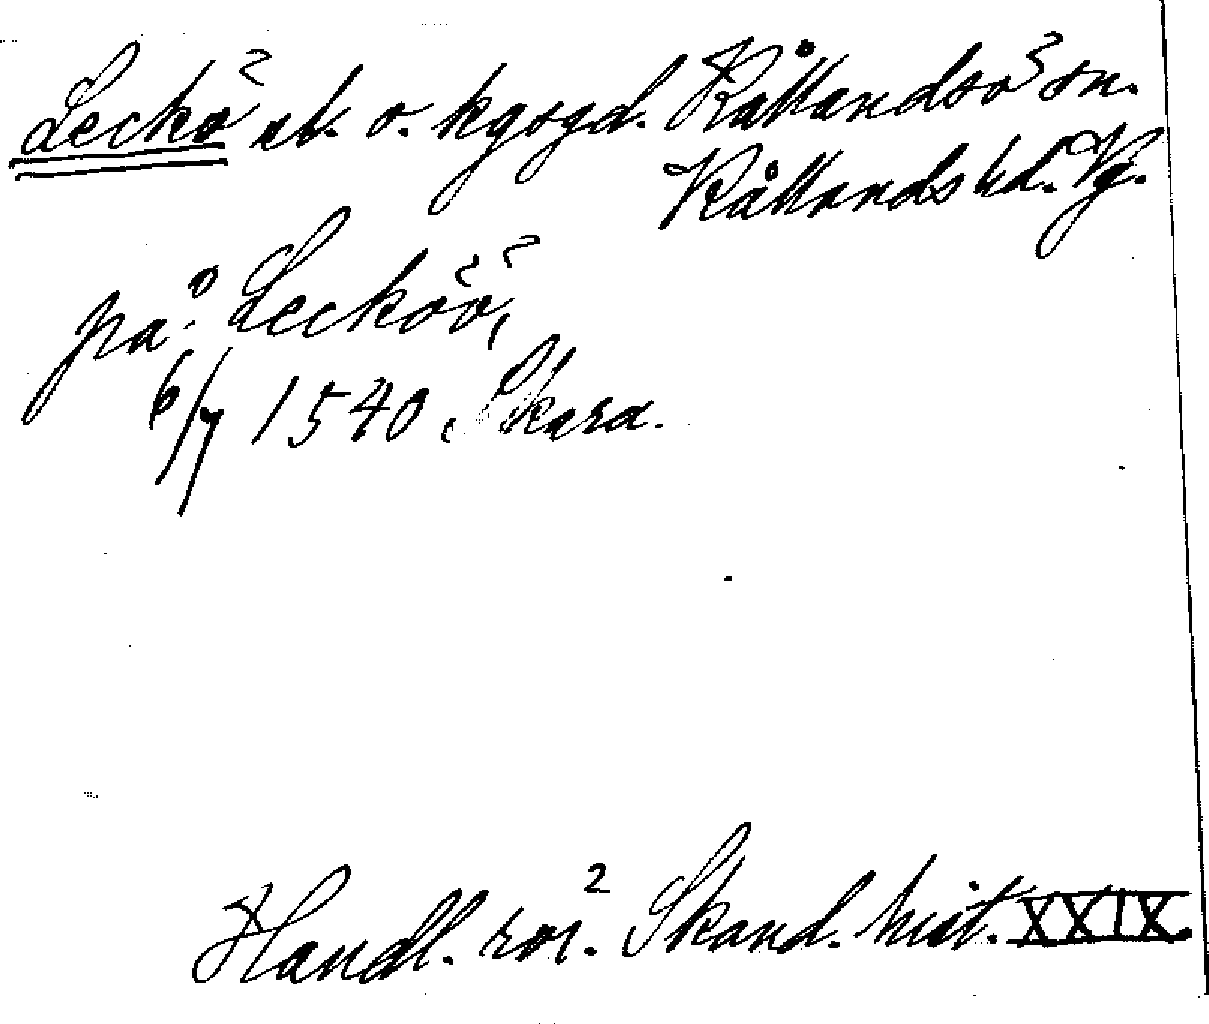 Leckö sl. o. kgsgd. Kållandsö sn.
Kållands hd. Vg.
på Lecköö,
6/7 1540, Skara.
Handl. rör. Skand. hist. XXIX.